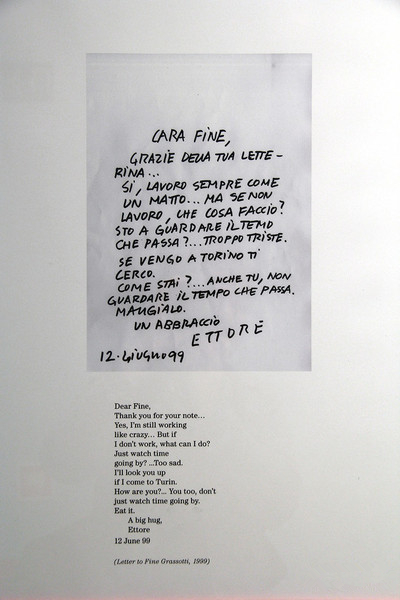 CARA FINE,
GRAZIE DELLA TUA LETTE-
RINA...
SI, LAVORO SEMPRE COME
UN MATTO... MA SE NON
LAVORO, CHE COSA FACCIO?
STO A GUARDARE IL TEMPO
CHE PASSA?...TROPPO TRISTE.
SE VENGO A TORINO TI
CERCO.
COME STAI?...ANCHE TU, NON
GUARDARE IL TEMPO CHE PASSA.
MANGIALO.
UN ABBRACCIO
ETTORE
12.GIUGNO 99
Dear Fine,
Thank you for your note...
Yes, I'm still working
like crazy... But if
I don't work, what can I do?
Just watch time
going by? ...Too sad.
I'll look you up
if I come to Turin.
How are you?... You too, don't
just watch time going by.
Eat it.
A big hug,
Ettore
12 June 99
(Letter to Fine Grassotti, 1999)